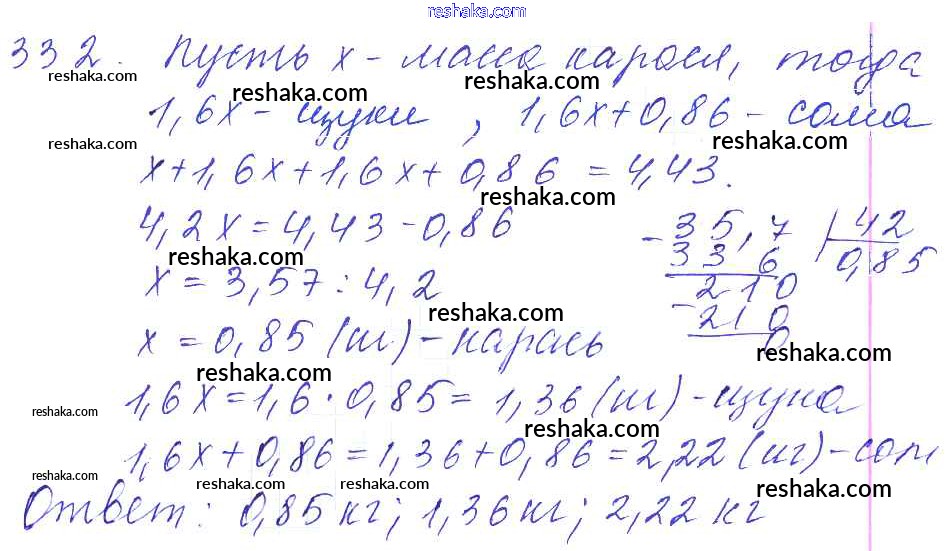 reshaka.com
332. Пусть x - масса карася, тогда
reshaka.com reshaka.com reshaka.com
1,6x - щуки, 1,6x+0,86 - сома
reshaka.com reshaka.com
x+1,6x+1,6x+0,86=4,43.
reshaka.com
4,2x=4,43-0,86
35,7 | 42
- 336 0,85
reshaka.com
x=3,57:4,2
210
reshaka.com
- 210
x=0,85 (кг) - карась
0
reshaka.com reshaka.com
1,6x=1,6·0,85=1,36 (кг) - щука
reshaka.com reshaka.com
1,6x+0,86=1,36+0,86=2,22 (кг) - сом
reshaka.com reshaka.com
Ответ: 0,85 кг; 1,36 кг; 2,22 кг